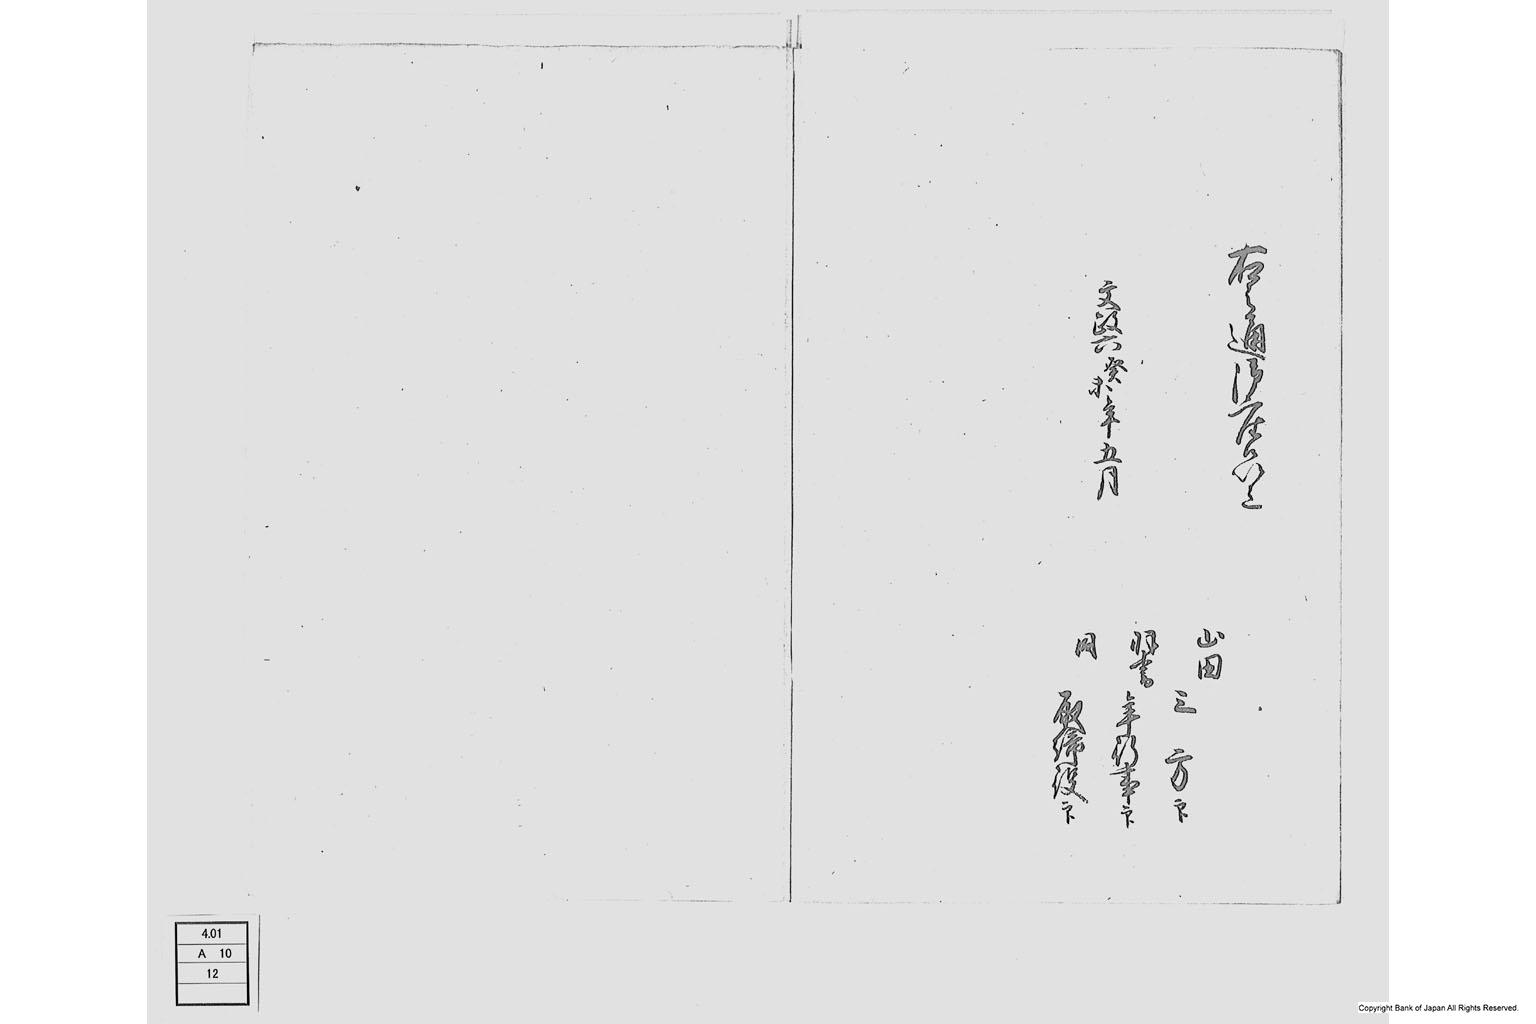 右之通御座候以上
文政六癸未年五月
山田
三方印
羽書
年行事印
同
取締役印
4.01
A 10
12
Copyright Bank of Japan All Rights Reserved.